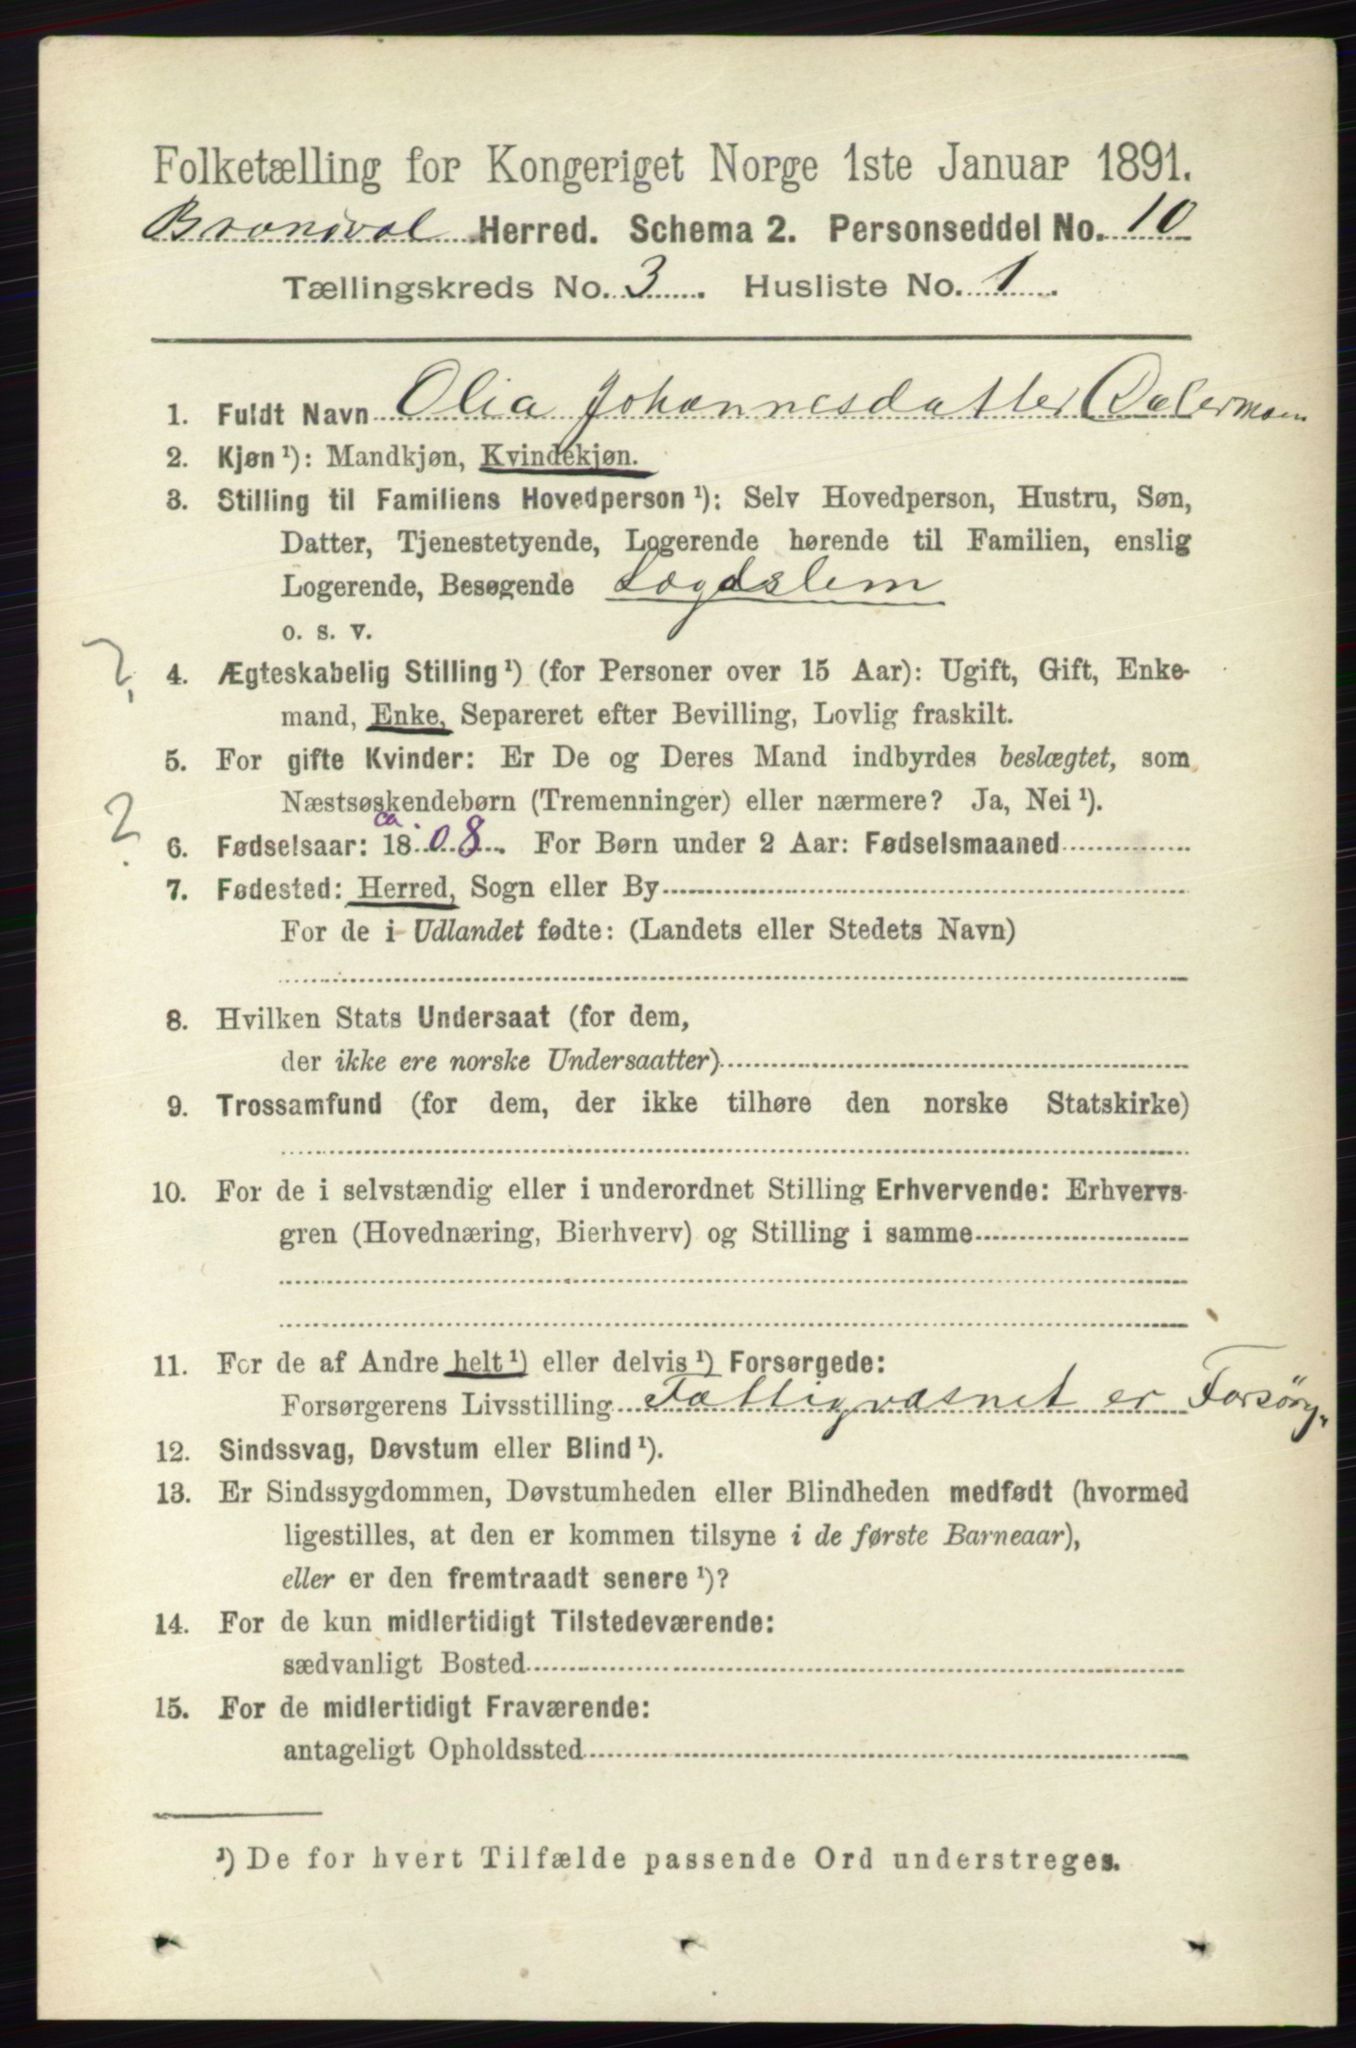 Folketælling for Kongeriget Norge 1ste Januar 1891.
Brandval Herred. Schema 2. Personseddel No. 10
Tællingskreds No. 3. Husliste No. 1.
1. Fuldt Navn Olia Johannesdatter
2. Kjøn ¹): Mandkjøn, Kvindekjøn.
3. Stilling til Familiens Hovedperson ¹): Selv Hovedperson, Hustru, Søn,
Datter, Tjenestetyende, Logerende hørende til Familien, enslig
Logerende, Besøgende Lægdslem
o. s. v.
? 4. Ægteskabelig Stilling ¹) (for Personer over 15 Aar): Ugift, Gift, Enke-
mand, Enke, Separeret efter Bevilling, Lovlig fraskilt.
5. For gifte Kvinder: Er De og Deres Mand indbyrdes beslægtet, som
Næstsøskendebørn (Tremenninger) eller nærmere? Ja, Nei ¹).
ca
? 6. Fødselsaar: 1808. For Børn under 2 Aar: Fødselsmaaned
7. Fødested: Herred, Sogn eller By
For de i Udlandet fødte: (Landets eller Stedets Navn)
8. Hvilken Stats Undersaat (for dem,
der ikke ere norske Undersaatter)
9. Trossamfund (for dem, der ikke tilhøre den norske Statskirke)
10. For de i selvstændig eller i underordnet Stilling Erhvervende: Erhvervs-
gren (Hovednæring, Bierhverv) og Stilling i samme
11. For de af Andre helt ¹) eller delvis ¹) Forsørgede:
Forsørgerens Livsstilling Fattigvæsnet er Forsørg.
12. Sindssvag, Døvstum eller Blind ¹).
13. Er Sindssygdommen, Døvstumheden eller Blindheden medfødt (hvormed
ligestilles, at den er kommen tilsyne i de første Barneaar),
eller er den fremtraadt senere ¹)?
14. For de kun midlertidigt Tilstedeværende:
sædvanligt Bosted
15. For de midlertidigt Fraværende:
antageligt Opholdssted
¹) De for hvert Tilfælde passende Ord understreges.